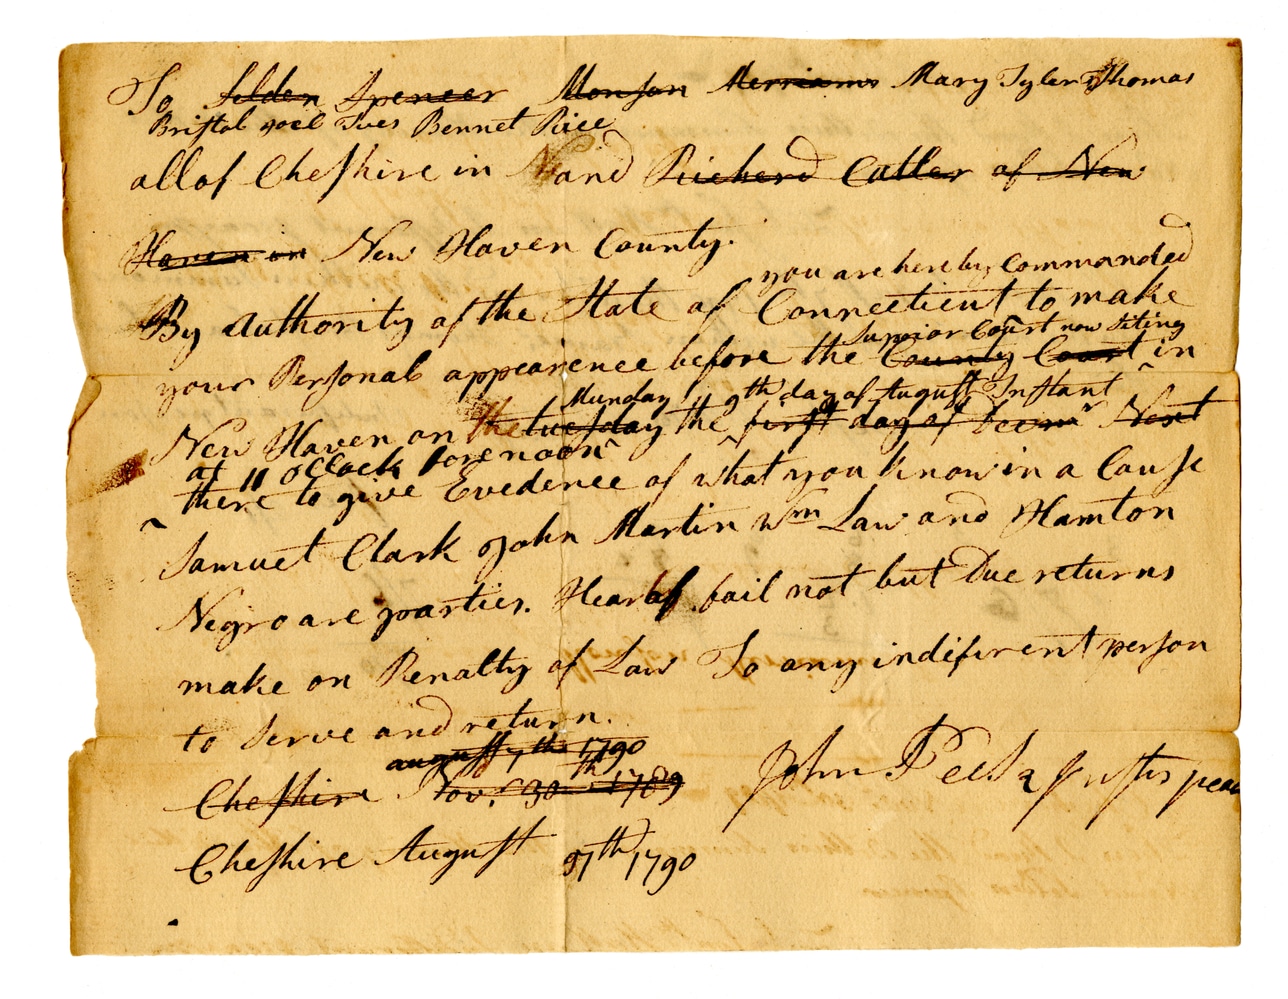 To Selden Spencer Monson Merriams Mary Tyler Thomas
Bristol Joel Ives Bennet Rice
all of Cheshire in N and Richerd Cutler of New
Haven in New Haven County.
you are hereby Commanded
By Authority of the State of Connecticut to make
Superior Court now Siting
your Personal appearence before the County Court in
Munday 9th day of August Instant
New Haven on the tuesday the first day of Decmr Next
at 11 oClock forenoon
there to give Evedence of what you know in a Cause
Samuel Clark John Martin Wm Law and Hamton
Negro are parties. Hearof fail not but Due returns
make on Penalty of Law To any indiferent person
to Serve and return.
august 7th 1790
Cheshire Novr 30th 1789
John Peck Justis peac
Cheshire August 7th 1790